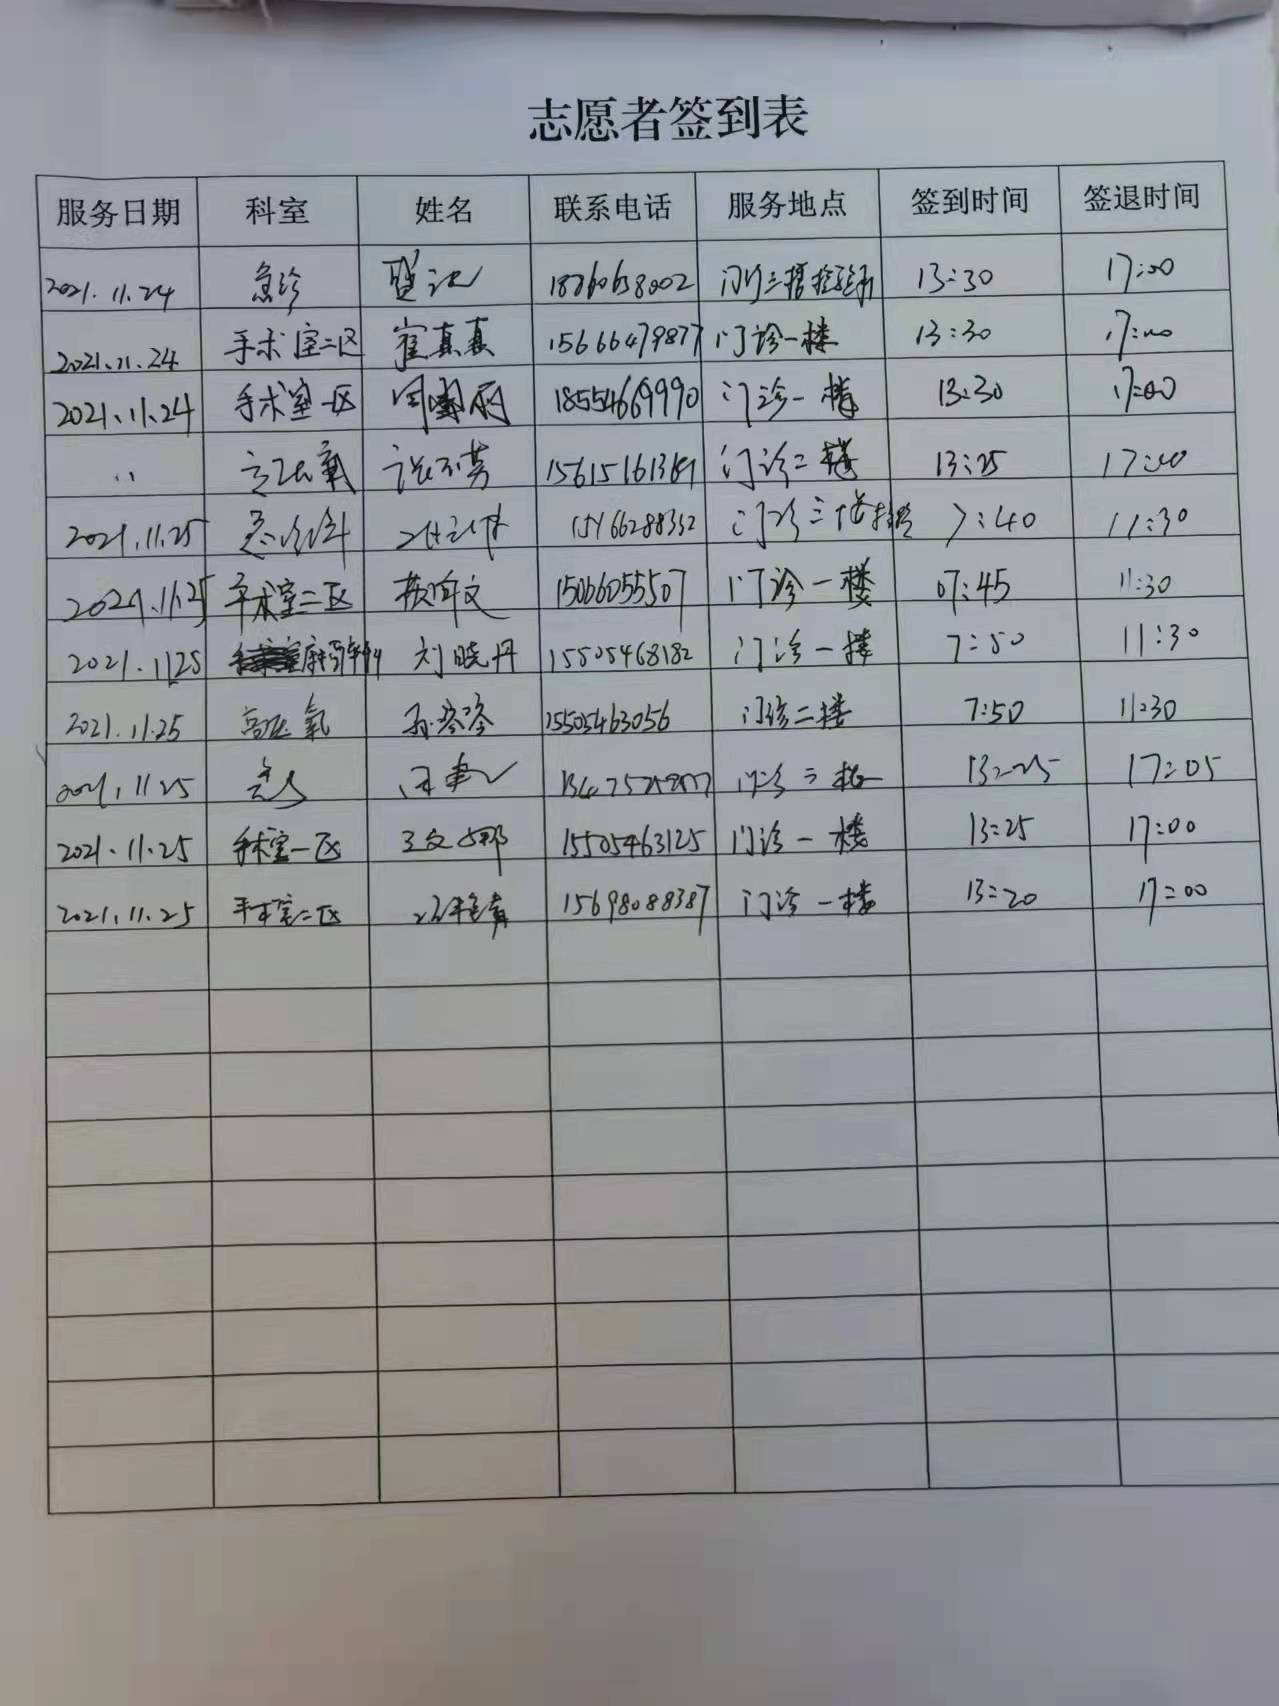 志愿者签到表
服务日期 科室 姓名 联系电话 服务地点 签到时间 签退时间
2021.11.24 急诊 18760638002 13:30 17:00
2021.11.24 手术室二区 崔真真 15666479877 门诊一楼 13:30 17:00
2021.11.24 手术室一区 18554669990 门诊一楼 13:30 17:00
高压氧 门诊二楼 13:25 17:00
2021.11.25 急诊科 门诊三楼 7:40 11:30
2021.11.25 手术室二区 15066055507 门诊一楼 07:45 11:30
2021.11.25 刘晓丹 15505468182 门诊一楼 7:50 11:30
2021.11.25 高压氧 15505463056 门诊二楼 7:50 11:30
2021.11.25 门诊三楼 13:25 17:05
2021.11.25 手术室一区 王文娜 15505463125 门诊一楼 13:25 17:00
2021.11.25 手术室二区 15698088387 门诊一楼 13:20 17:00